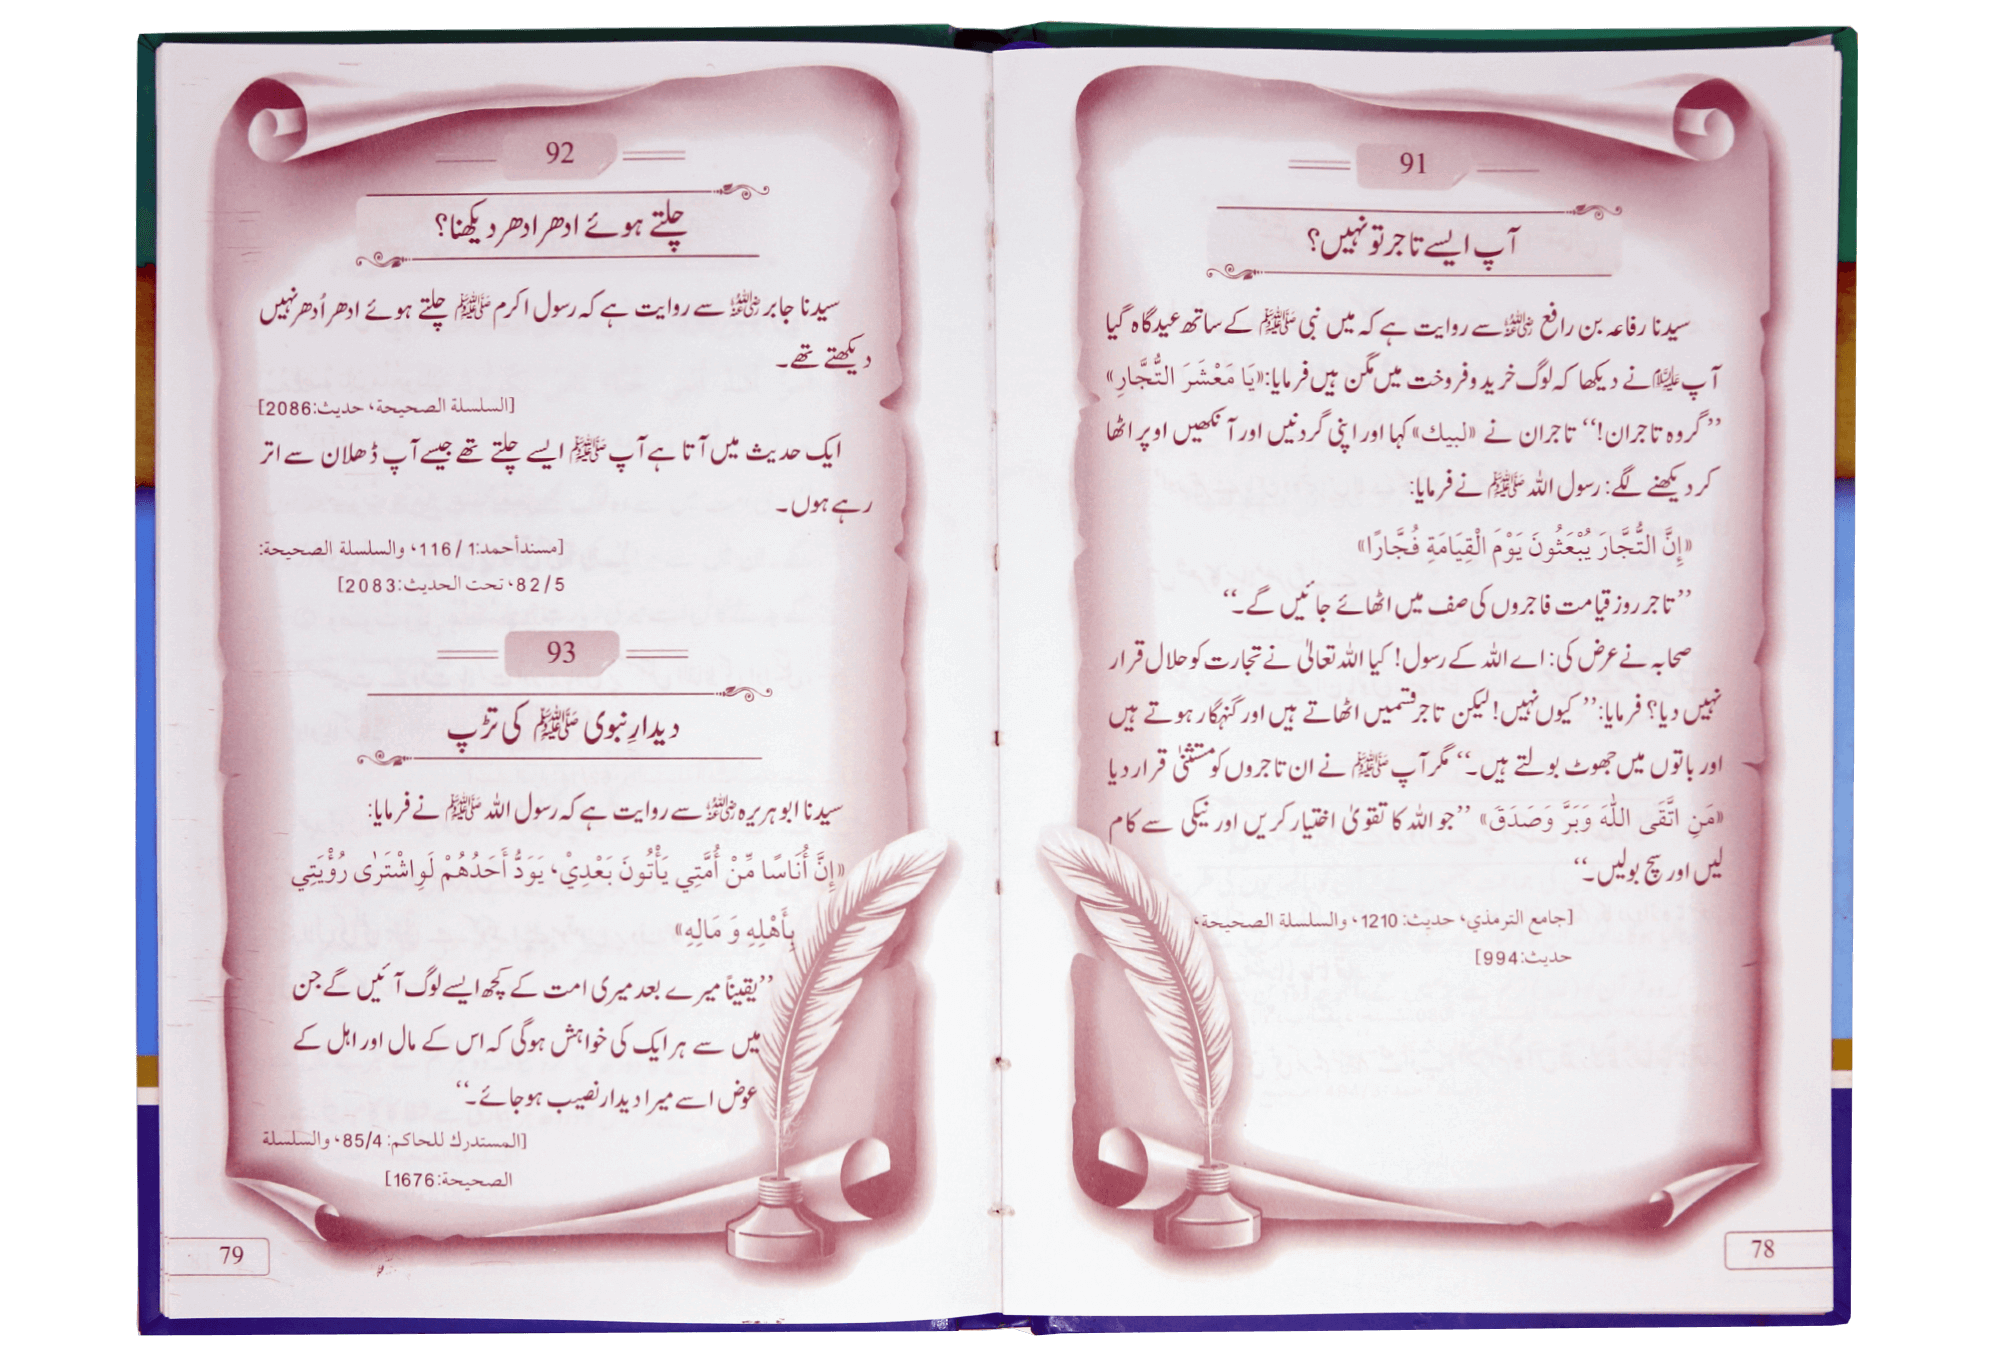 91
آپ ایسے تاجر تو نہیں؟
سیدنا رفاعہ بن رافع رضی اللہ عنہ سے روایت ہے کہ میں نبی ﷺ کے ساتھ عیدگاہ گیا
آپ علیہ السلام نے دیکھا کہ لوگ خرید و فروخت میں مگن ہیں فرمایا: «يَا مَعْشَرَ التُّجَّارِ»
’’گروہ تاجران!‘‘ تاجران نے «لبيك» کہا اور اپنی گردنیں اور آنکھیں اوپر اٹھا
کر دیکھنے لگے: رسول اللہ ﷺ نے فرمایا:
«إِنَّ التُّجَّارَ يُبْعَثُونَ يَوْمَ الْقِيَامَةِ فُجَّارًا»
’’تاجر روز قیامت فاجروں کی صف میں اٹھائے جائیں گے۔‘‘
صحابہ نے عرض کی: اے اللہ کے رسول! کیا اللہ تعالیٰ نے تجارت کو حلال قرار
نہیں دیا؟ فرمایا: ’’کیوں نہیں! لیکن تاجر قسمیں اٹھاتے ہیں اور گنہگار ہوتے ہیں
اور باتوں میں جھوٹ بولتے ہیں۔‘‘ مگر آپ ﷺ نے ان تاجروں کو مستثنیٰ قرار دیا
«مَنِ اتَّقَى اللّٰهَ وَبَرَّ وَصَدَقَ» ’’جو اللہ کا تقویٰ اختیار کریں اور نیکی سے کام
لیں اور سچ بولیں۔‘‘
[جامع الترمذي، حديث: 1210، والسلسلة الصحيحة،
حديث: 994]
78
92
چلتے ہوئے ادھر ادھر دیکھنا؟
سیدنا جابر رضی اللہ عنہ سے روایت ہے کہ رسول اکرم ﷺ چلتے ہوئے ادھر اُدھر نہیں
دیکھتے تھے۔
[السلسلة الصحيحة، حديث: 2086]
ایک حدیث میں آتا ہے آپ ﷺ ایسے چلتے تھے جیسے آپ ڈھلان سے اتر
رہے ہوں۔
[مسند أحمد: 1/116، والسلسلة الصحيحة:
5/82، تحت الحديث: 2083]
93
دیدارِ نبوی ﷺ کی تڑپ
سیدنا ابو ہریرہ رضی اللہ عنہ سے روایت ہے کہ رسول اللہ ﷺ نے فرمایا:
«إِنَّ أُنَاسًا مِّنْ أُمَّتِي يَأْتُونَ بَعْدِيْ، يَوَدُّ أَحَدُهُمْ لَوِاشْتَرٰى رُؤْيَتِي
بِأَهْلِهِ وَ مَالِهِ»
’’یقیناً میرے بعد میری امت کے کچھ ایسے لوگ آئیں گے جن
میں سے ہر ایک کی خواہش ہوگی کہ اس کے مال اور اہل کے
عوض اسے میرا دیدار نصیب ہو جائے۔‘‘
[المستدرك للحاكم: 85/4، والسلسلة
الصحيحة: 1676]
79